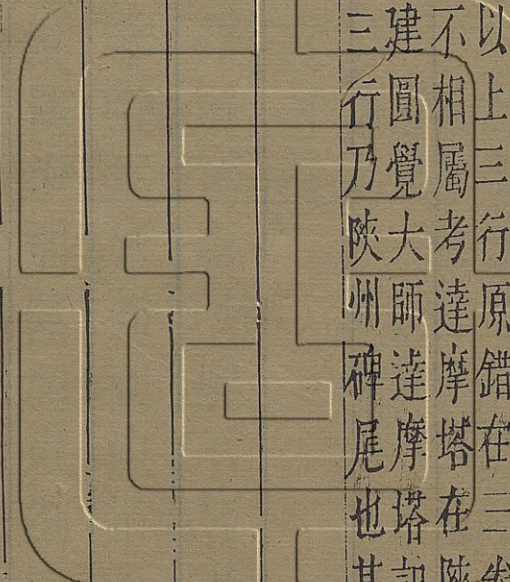 以上三行原錯在三
不相屬考達摩塔在陝
建圓覺大師達摩塔記
三行乃陝州碑尾也其